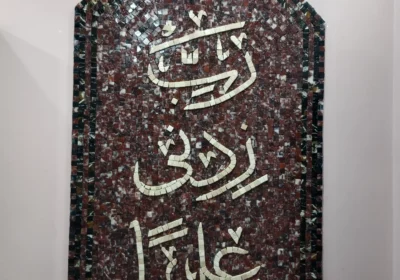 رَبِّ
زِدْنِي
عِلْمًا